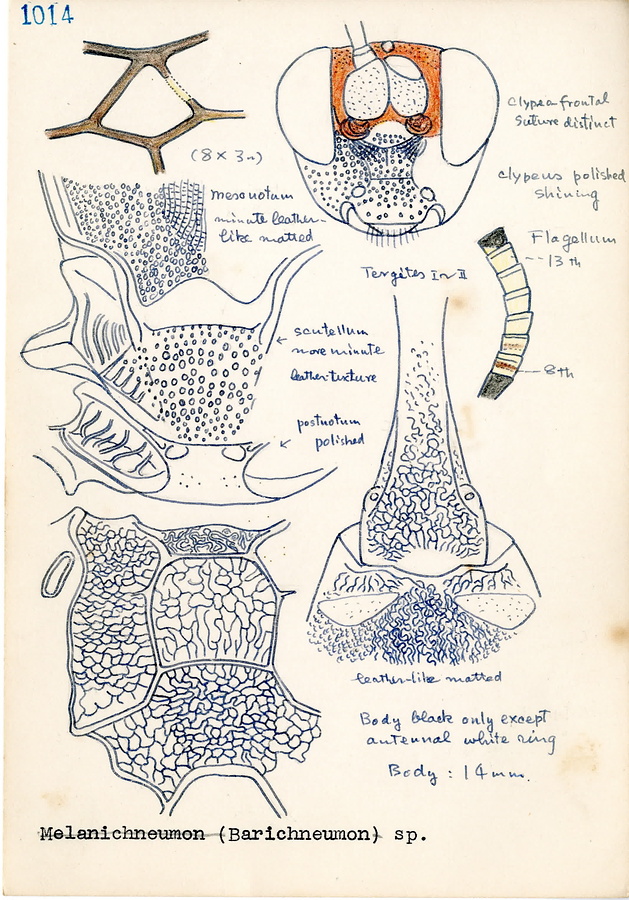 1014
(8 × 3㎜)
Clypeo frontal
suture distinct
clypeus polished
shining
mesonotum
minute leather-
like matted
Flagellum
13 th
8th
Tergites I~II
scutellum
more minute
leather texture
postnotum
polished
leather-like matted
Body black only except
antennal white ring
Body : 14 mm.
Melanichneumon (Barichneumon) sp.